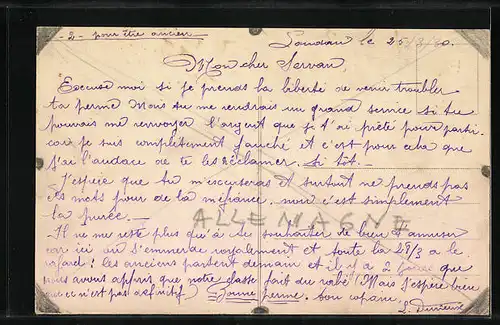 -2- pour être ancien
Landau le 25/3/30.
Mon cher Servan,
Excuse moi si je prends la liberté de venir troubler
ta perme mais tu me rendrais un grand service si tu
pouvais me renvoyer l'argent que je t'ai prêté pour parti.
car je suis complètement fauché et c'est pour cela que
j'ai l'audace de te les réclamer. si tôt.
J'espère que tu m'excuseras et surtout ne prends pas
ces mots pour de la méfiance, non c'est simplement
la purée. —
ALLEMAGNE
Il ne me reste plus qu'à te souhaiter de bien t'amuser
car ici on s'emmerde royalement et toute la 29/3 a le
cafard! les anciens partent demain et il y a 2 jours que
nous avons appris que notre classe fait du rabe (Mais j'espère bien
que ce n'est pas définitif) Bonne perme. ton copain,